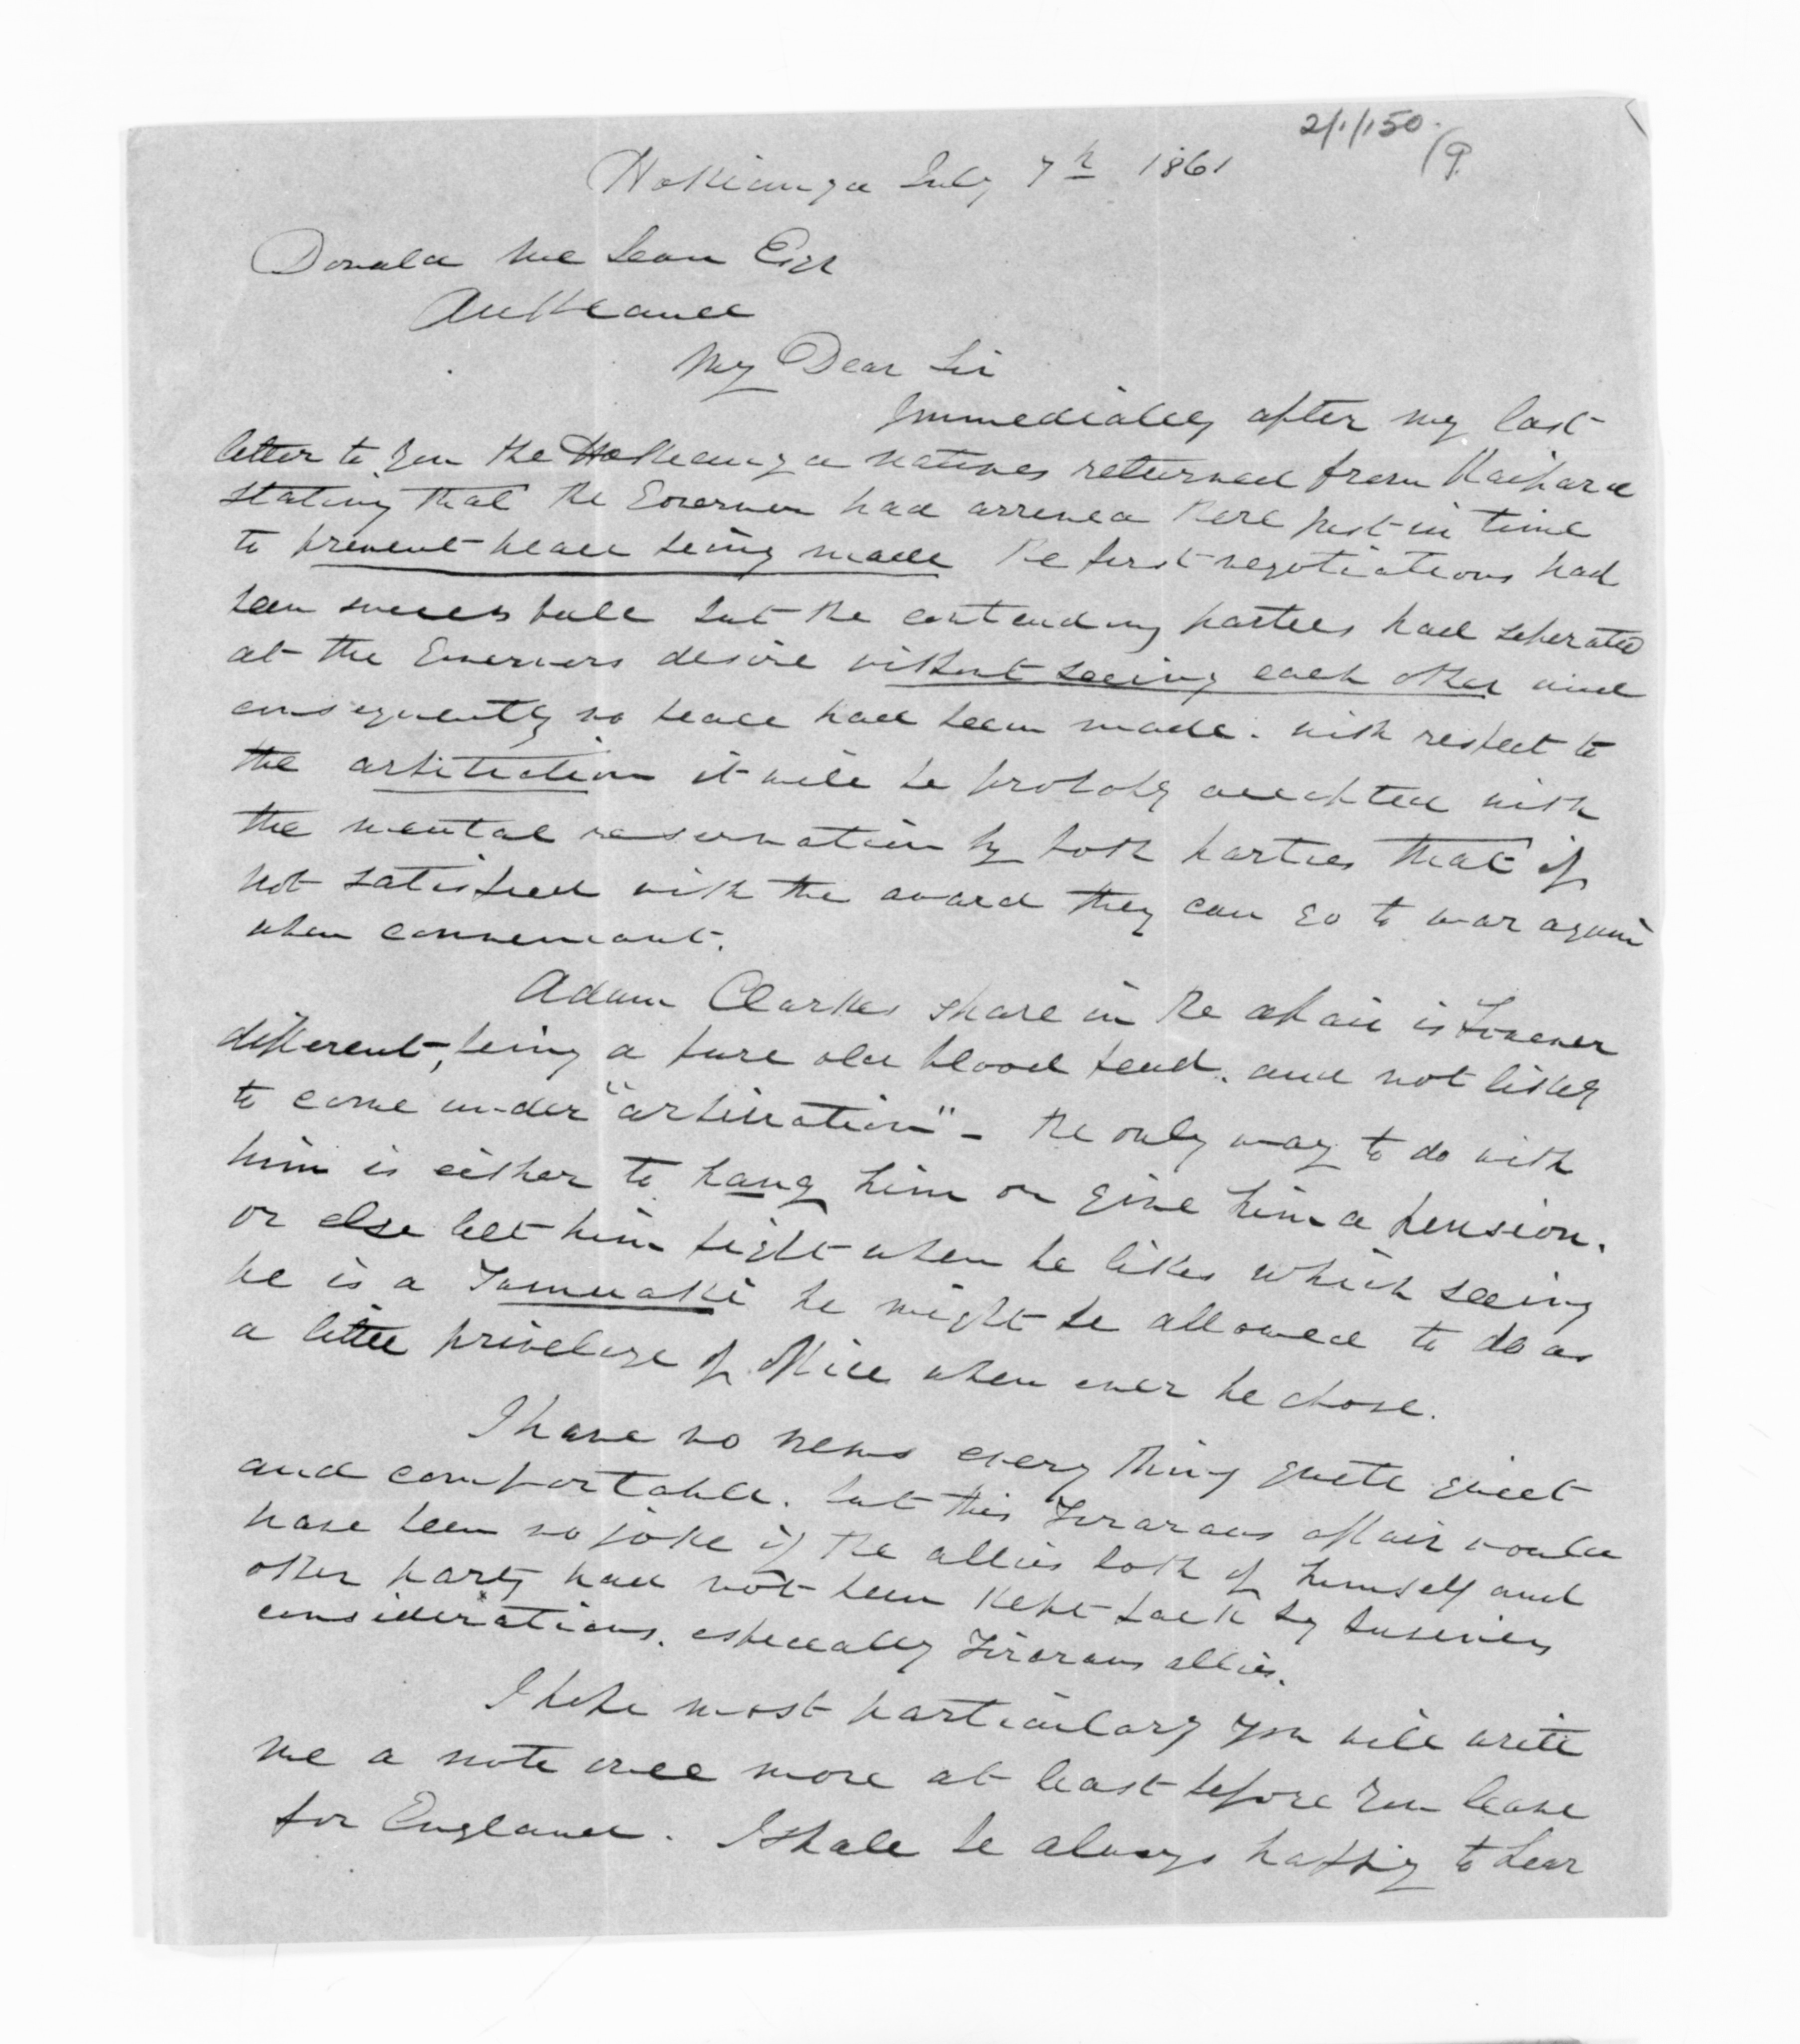 2/1/150.
/9.
Hokianga July 7th 1861
Donald McLean Esqr
Auckland
My Dear Sir
Immediatley after my last
letter to you the Hokianga natives returned from Kaipara
stating that the Governor had arrived there just in time
to prevent peace being made The first negotiations had
been successfull but the contending parties had seperated
at the Governors desire without seeing each other and
consequently no peace had been made. with respect to
the arbitration it will be probaby accepted with
the mental reservation by both parties that if
not satisfied with the award they can go to war again
when conveniant.
Adam Clarkes share in the afair is however
different, being a pure old blood feud. and not likely
to come under "arbitration" - the only way to do with
him is either to hang him or give him a pension.
or else lett him fight when he likes which seeing
he is a Tumuaki he might be allowed to do as
a little privelege of office when ever he chose.
I have no news every thing quite quiet
and comfortable. but this Tiraraus affair would
have been no joke if the allies both of himself and
other party had not been kept back by business
considerations. especially Tiraraus allies.
I hope most particulary you will write
me a note once more at least before you leave
for England. I shall be always happy to hear